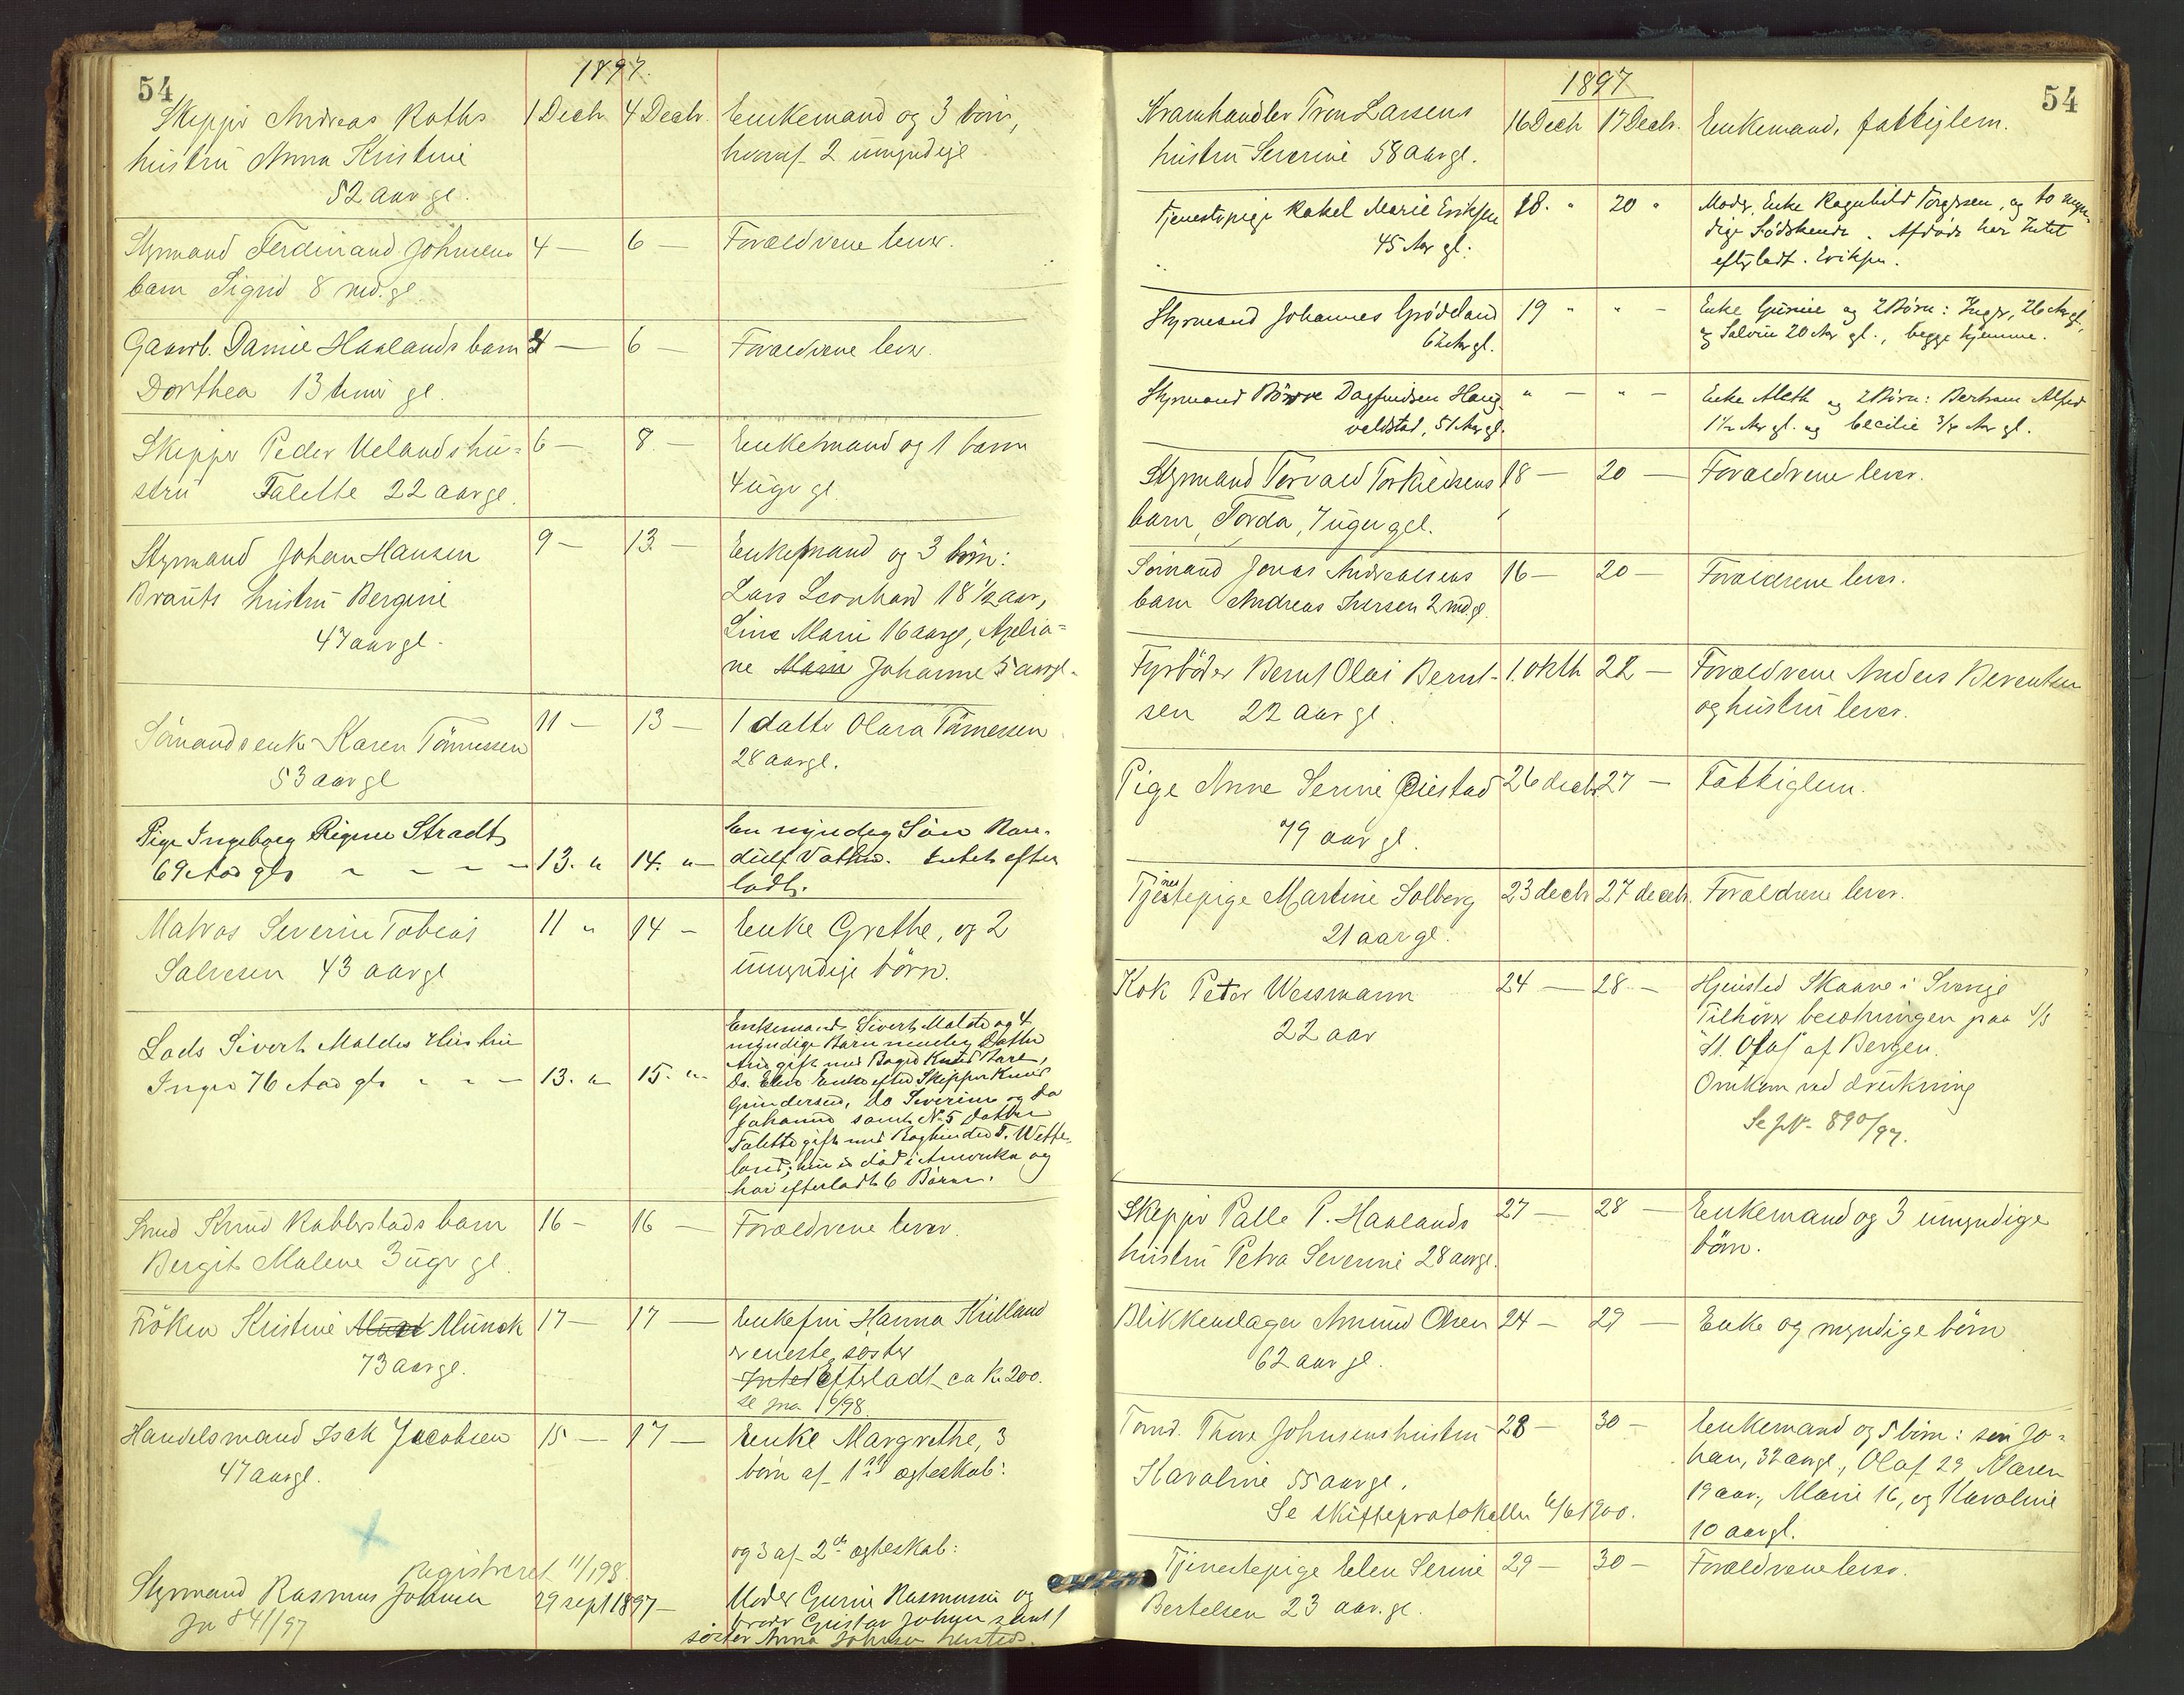 54
1897.
Skipper Andreas Roths 1 Decbr 4 Decbr. Enkemand og 3 börn,
hustru Anna Kristine hvoraf 2 umyndige
52 aar gl.
Styrmand Ferdinand Johnsens 4 — 6 — Forældrene lever.
barn Sigrid 8 md. gl.
Gaardb. Daniel Haalands barn 4 — 6 — Forældrene lever.
Dorthea 13 timer gl.
Skipper Peder Uelands hu= 6 — 8 — Enkemand og 1 barn
stru Talette 22 aar gl. 4 uger gl.
Styrmand Johan Hansen 9 — 13 — Enkemand og 3 börn:
Brauts hustru Bergine Lars Leonhard 18 1/2 aar,
47 aar gl. Line Marie 16 aar gl,
ne Marie Johanne 5 aar gl.
Sömandsenke Karen Tönnessen 11 — 13 — 1 datter Olara Tönnessen
53 aar gl 28 aar gl.
Pige Ingeborg Regine Stradt En myndig Sön
69 Aar gl. 13. " 14. " Intet efter
ladt.
Matros Severin Tobias 11 " 14 — Enke Grethe, og 2
Salvesen 43 aar gl umyndige börn.
Lods Sivert Maldes Hustru Enkemand Sivert Malde og 4
Inger 76 Aar gl. 13. " 15. " myndige Börn nemlig Datter
gift med
Enke efter Skipper Knud
Gundersen, do Severine og do
Johanne samt No 5 Datter
Talette gift med Bogbinder T. Wette=
land; hun er död i Amerika og
har efterladt 6 Börn.
Smed Knud Rabberstads barn 16 — 16 — Forældrene lever.
Bergit Malene 3 uger gl.
Fröken Kristine Munck 17 — 17 — Enkefru Hanna Kielland
73 aar gl. er eneste söster
Intet Efterladt ca Kr 200.
se jna 16/98
Handelsmand Isak Jacobsen 15 — 17 — Enke Margrethe, 3
47 aar gl. börn af 1ste ægteskab:
og 3 af 2det ægteskab:
registreret 11/1 98.
Styrmand Rasmus Johnsen 29 sept 1897 — Moder Gurine Rasmussen og
Jn 841/97 broder Gustav Johnsen samt 1
söster Anna Johnsen
54
1897
Kramhandler Tron Larsens 16 Decbr 17 Decbr. Enkemand, fattiglem.
hustru Severine 58 aar gl.
Tjenestepige Rakel Marie Eriksen 18. " 20 " Moder, Enke Ragnhild Torgersen, og to myn=
45 Aar gl. dige Södskende. Afdöde har Intet
efterladt. Eriksen.
Styrmand Johannes Grödeland 19 " " — Enke Gurine og 2 Börn: Inger, 26 Aar gl.,
62 Aar gl. og Salvine 20 Aar gl., begge hjemme.
Styrmand Börre Dagfindsen Haug= " — " — Enke Aleth og 2 Börn: Bertram Alfred
valdstad, 51 Aar gl. 1 1/2 Aar gl. og Cecilie 3/4 Aar gl.
Styrmand Torvald Torkildsens 18 — 20 — Forældrene lever.
barn, Torda, 7 uger gl.
Sömand Jonas Andreassens 16 — 20 — Forældrene lever.
barn Andreas Iversen 2 md. gl.
Fyrböder Bernt Olai Bernt= 1. oktb 22 — Forældrene Anders Berentsen
sen 22 aar gl. og hustru lever.
Pige Anne Serine Öiestad 26 decbr 27 — Fattiglem.
79 aar gl.
Tjenestepige Martine Solberg 23 decbr 27 decbr. Forældrene lever.
21 aar gl.
Kok Peter Wessmann 24 — 28 — Hjemsted Skaane i Sverige
22 aar Tilhörer besætningen paa S/S
"St. Olaf" af Bergen.
Omkom ved drukning
Se J.N. 890/97.
Skipper Palle P. Haalands 27 — 28 — Enkemand og 3 umyndige
hustru Petra Severine 28 aar gl. börn.
Blikkenslager Amund Olsen 24 — 29 — Enke og myndige börn
62 aar gl.
Tömd. Thore Johnsens hustru 28 — 30 — Enkemand og 5 börn: sön Jo=
Karoline 55 aar gl. han, 32 aar gl, Olaf 29 Maren
Se skifteprotokollen 6/6 1900. 19 aar, Marie 16, og Karoline
10 aar gl.
Tjenestepige Elen Serine 29 — 30 — Forældrene lever.
Bertelsen 23 aar. gl.